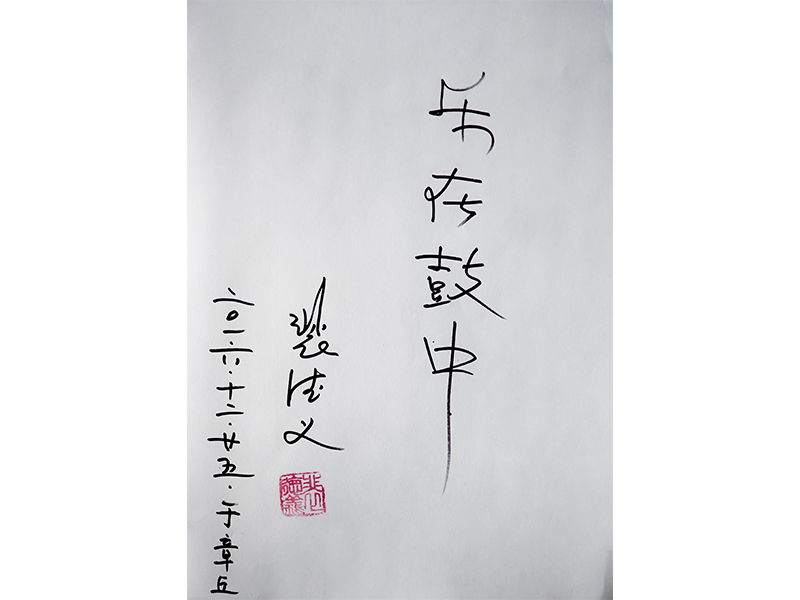 乐在鼓中
裴德义
二〇一六·十二·廿五·于章丘
裴德義